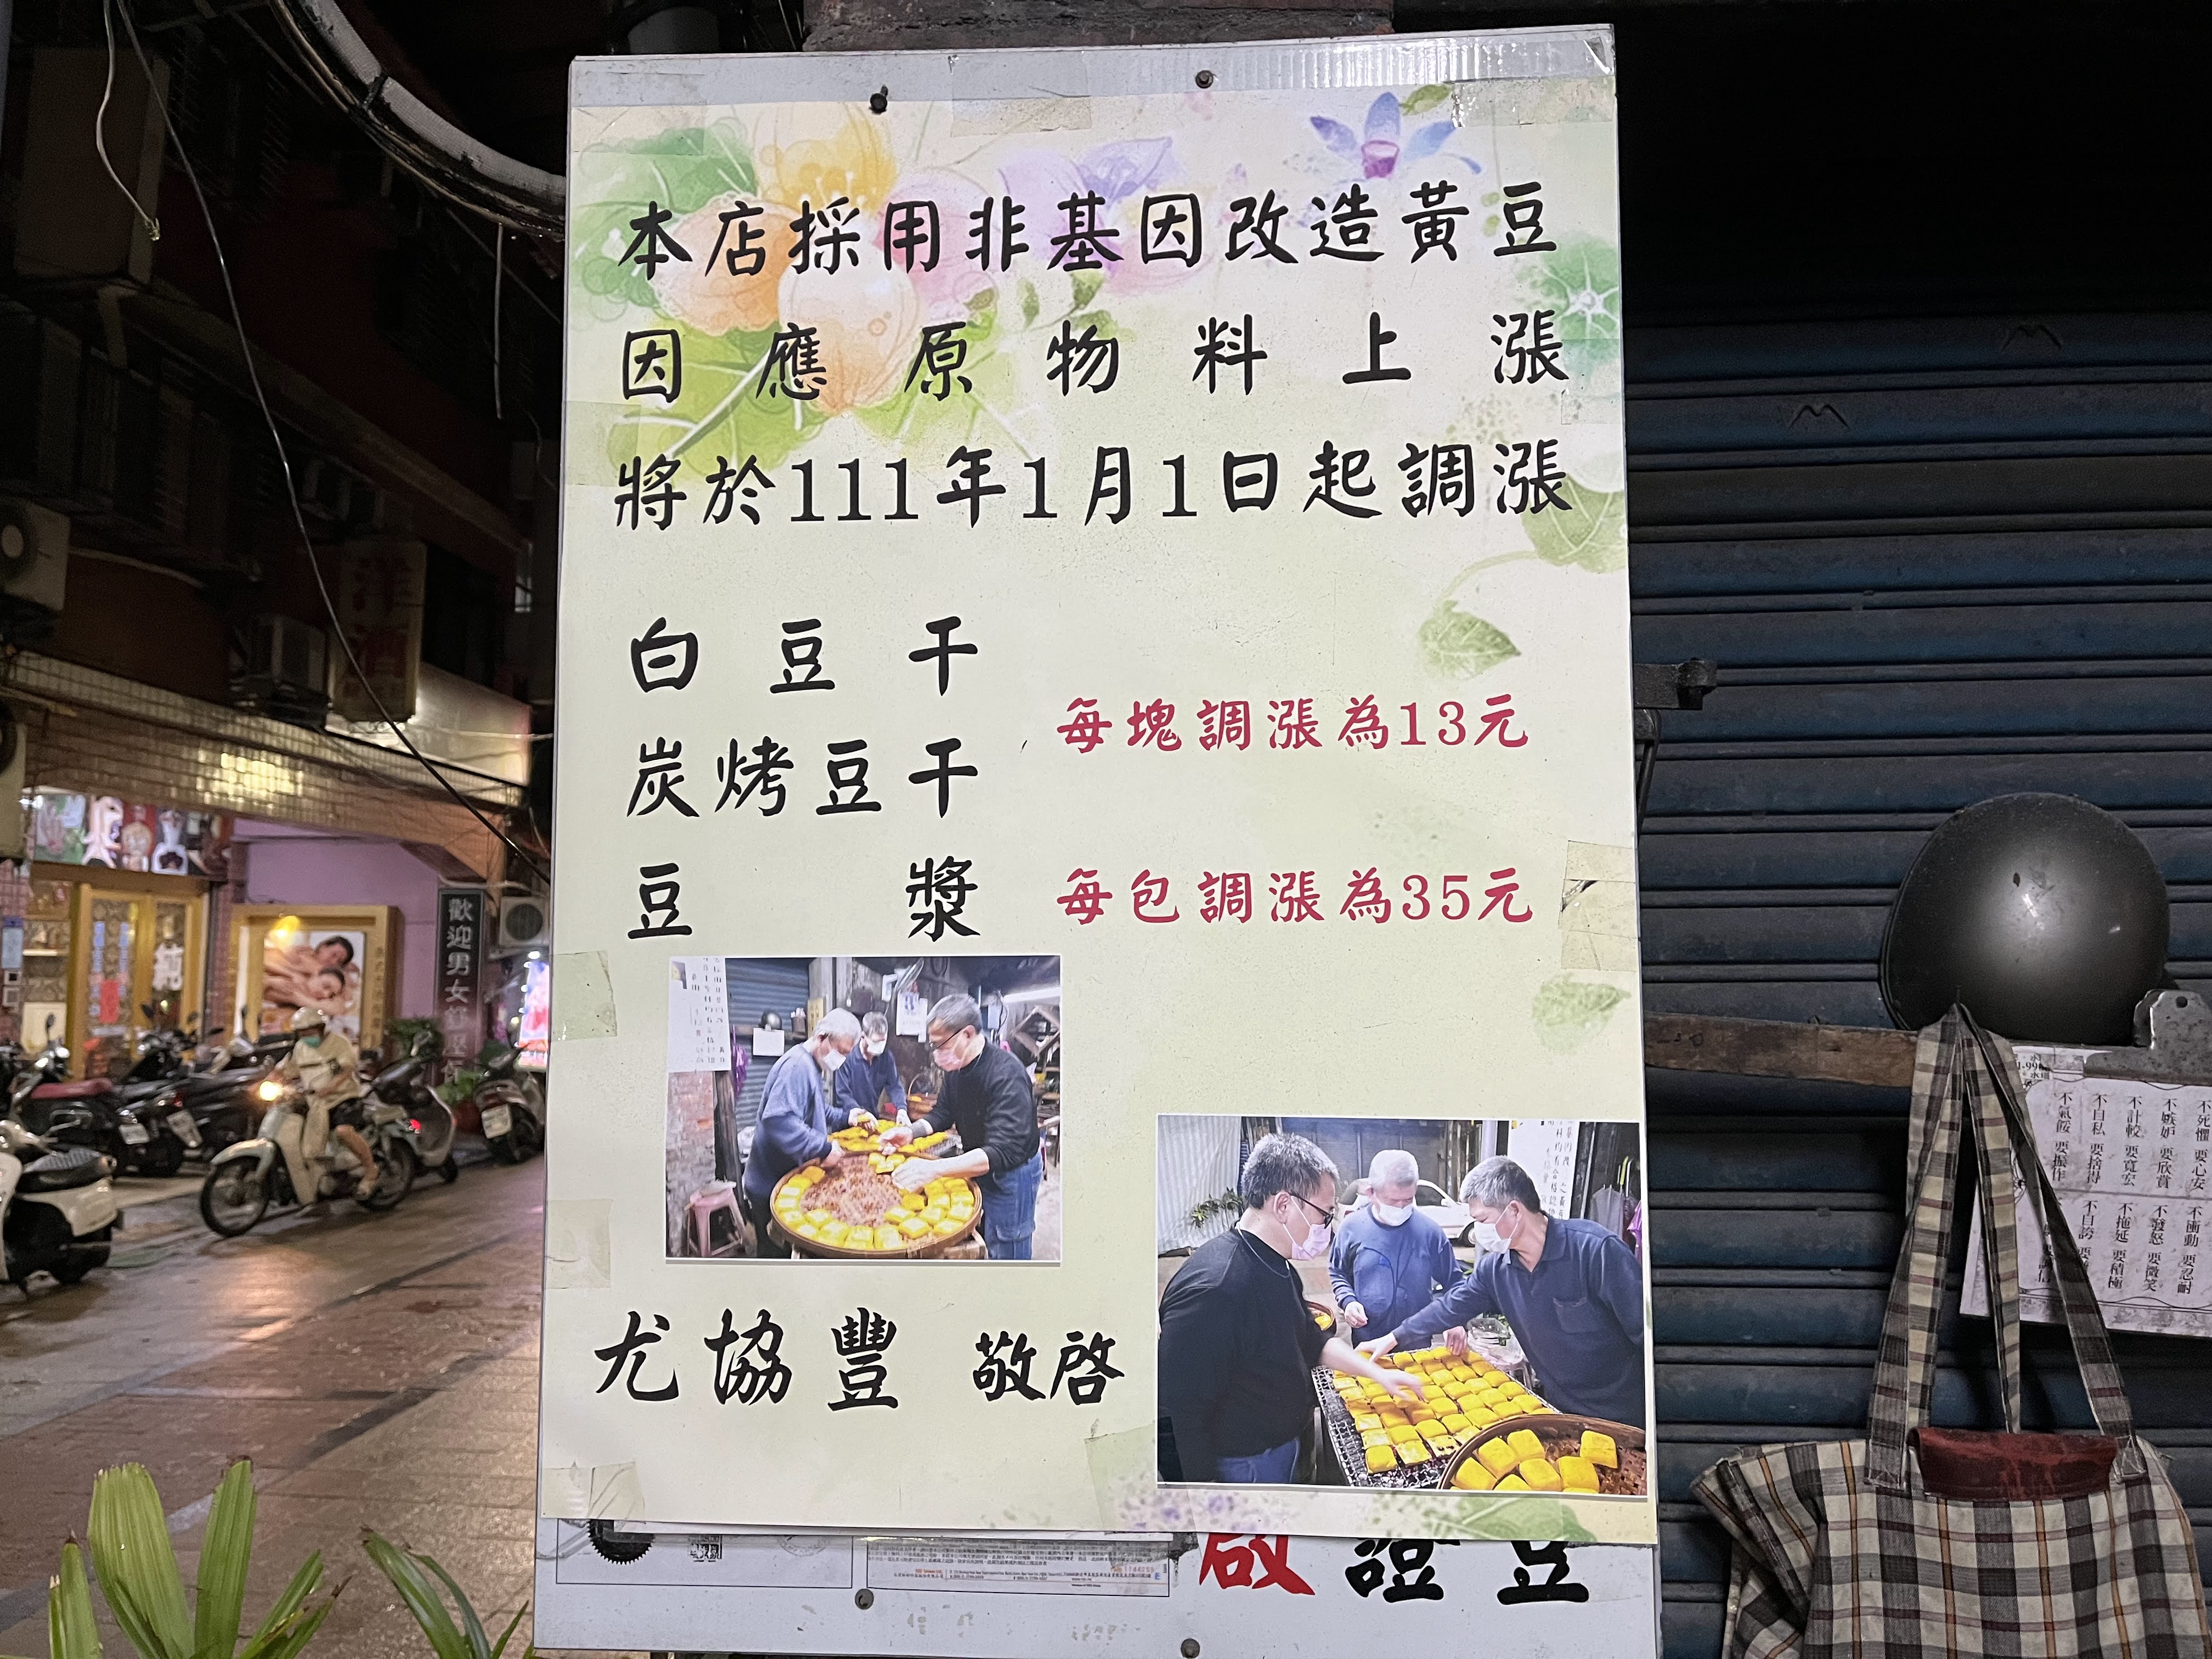 本店採用非基因改造黃豆
因應原物料上漲
將於111年1月1日起調漲
白豆干
炭烤豆干
每塊調漲為13元
豆漿
每包調漲為35元
尤協豐 敬啓
啟 證 豆
歡迎男女
不死懼 要心安
不嫉妒 要欣賞
不計較 要寬宏
不自私 要捨得
不氣餒 要振作
不衝動 要忍耐
不發怒 要微笑
不拖延 要積極
不自誇